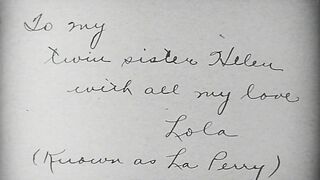 To my
twin sister Helen
with all my love
Lola
(Known as La Perry)